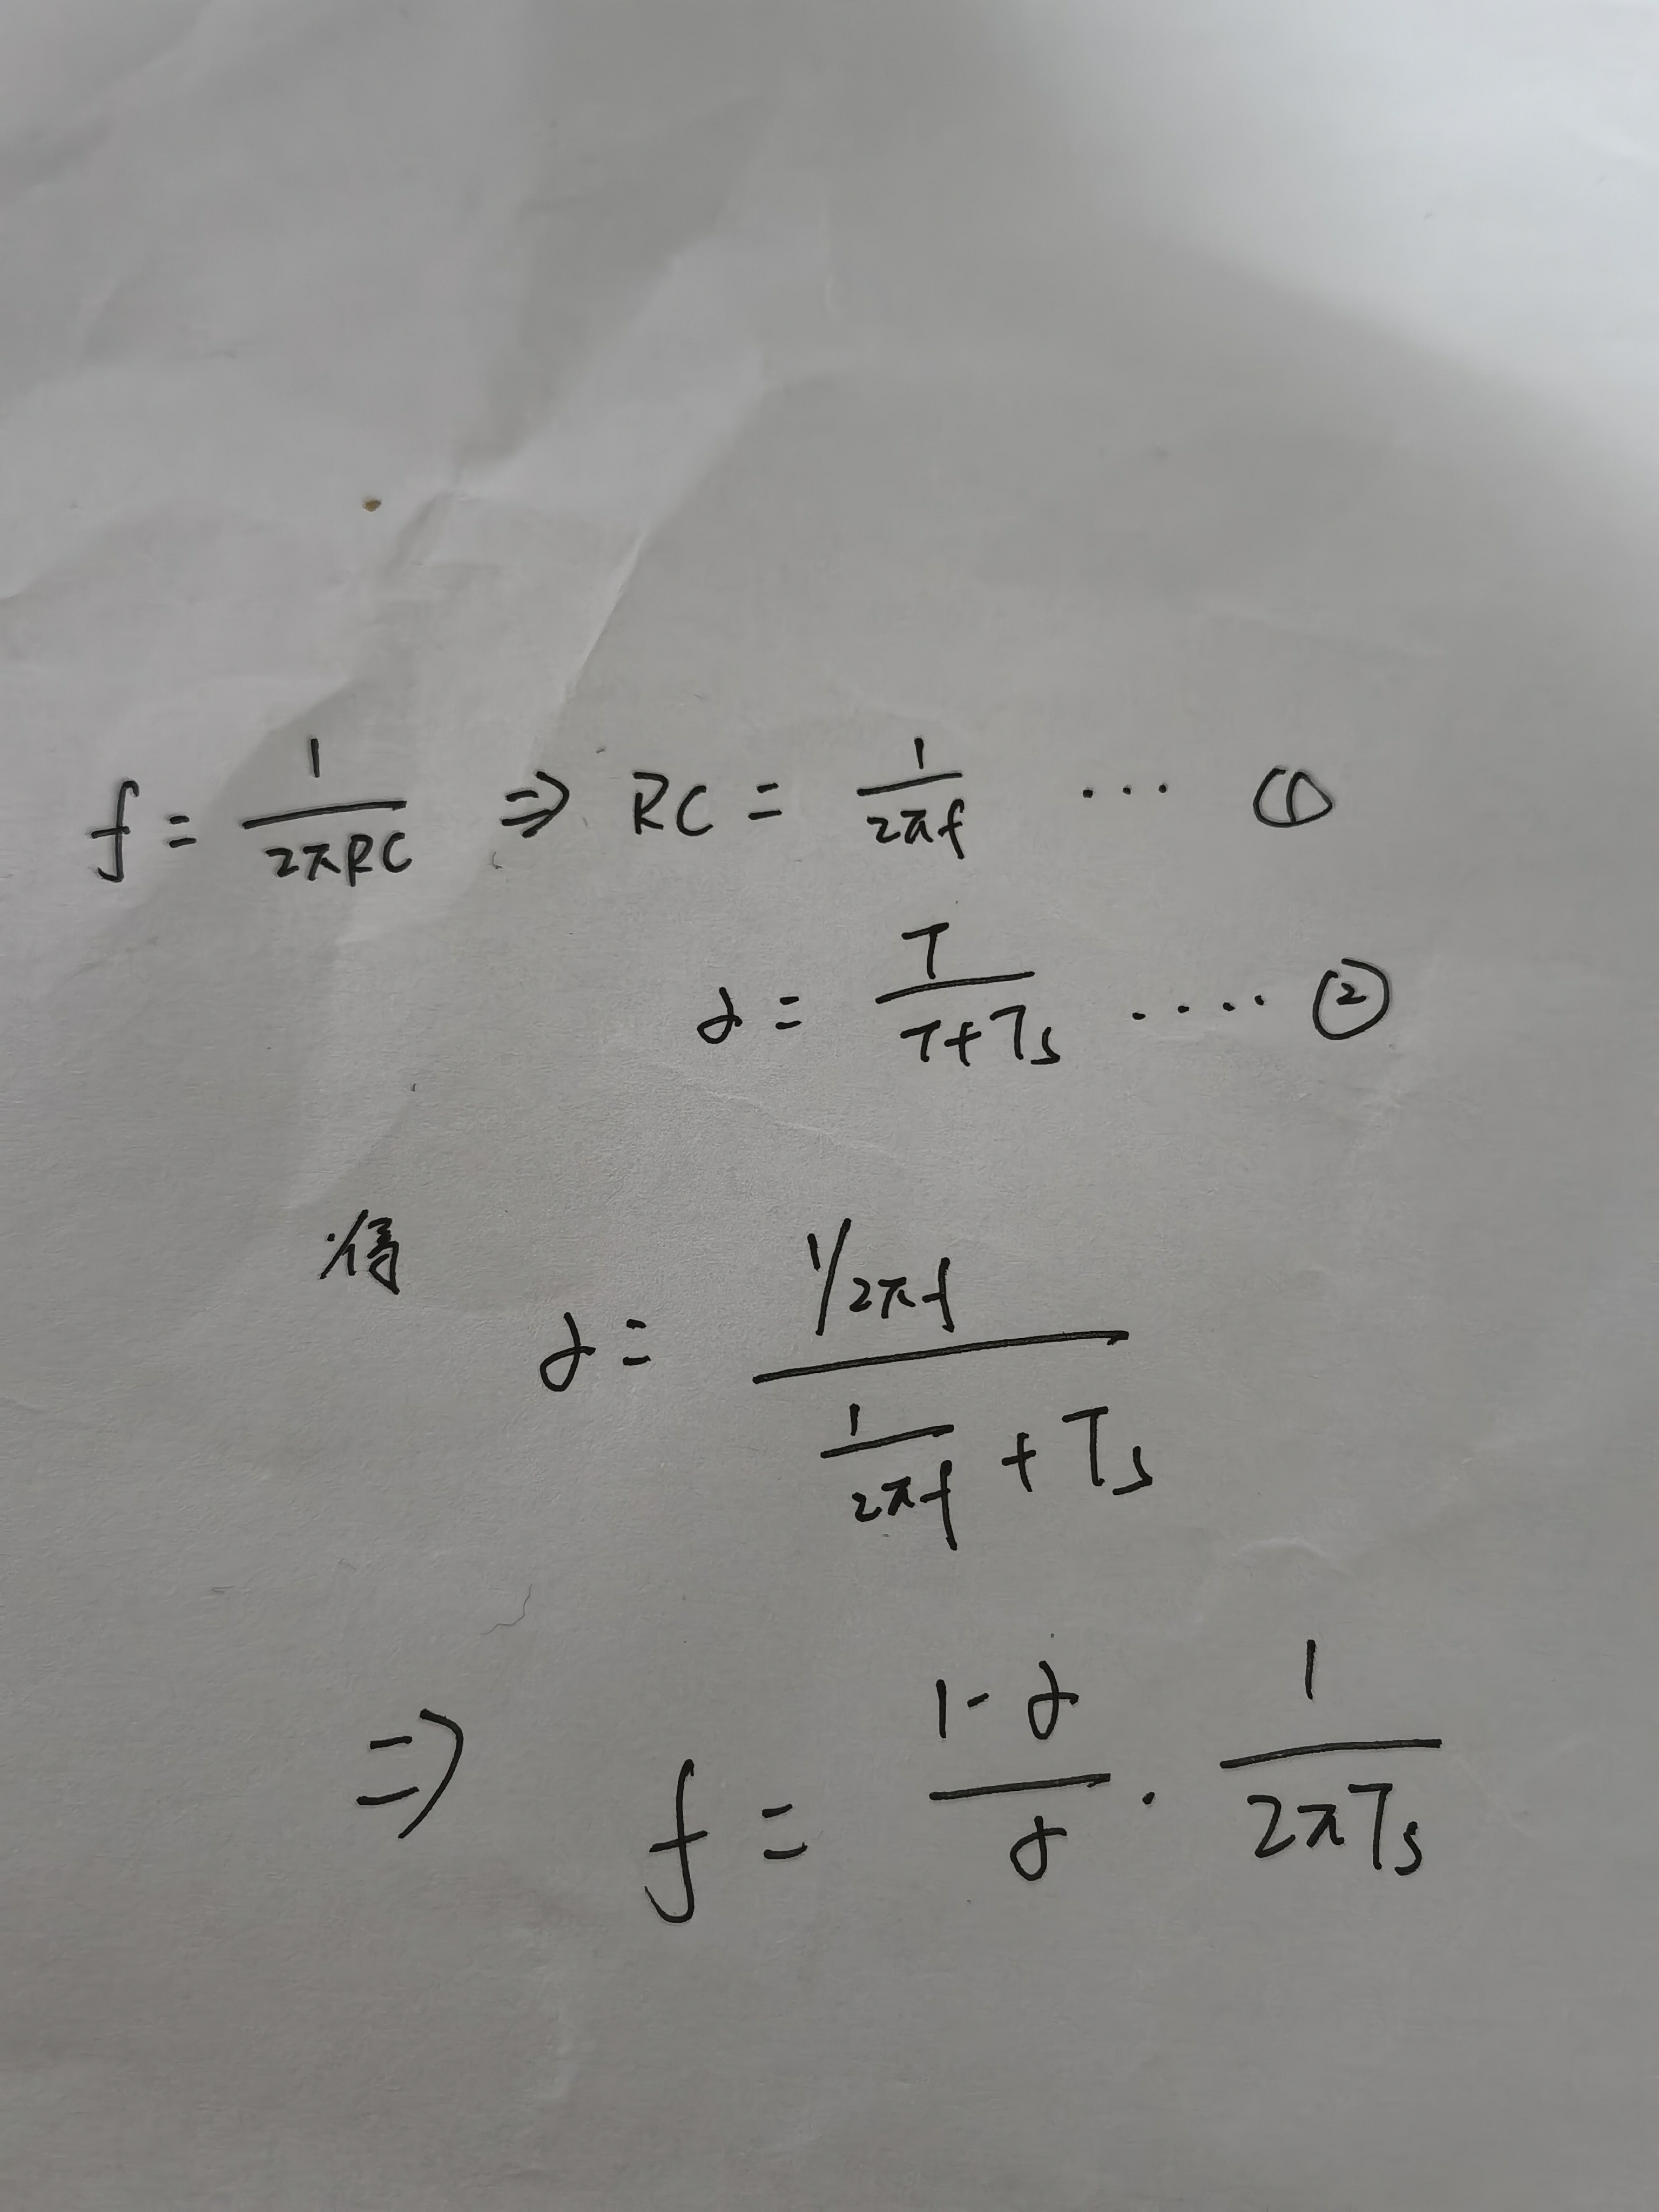 f = 1/(2πRC) ⇒ RC = 1/(2πf) ... ①
α = T/(T+Ts) ..... ②
得
α = (1/2πf)/(1/(2πf) + Ts)
⇒ f = (1-α)/α · 1/(2πTs)